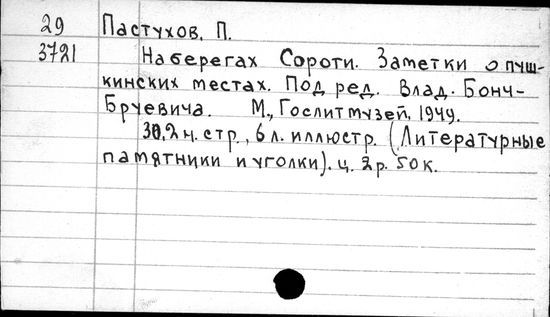 29 Пастухов, П.
3721 На берегах Сороти. Заметки о пуш-
кинских местах. Под ред. Влад. Бонч-
Бруевича. М., Гослитмузей, 1949.
30,2 н. стр., 6 л. иллюстр. (Литературные
памятники и уголки). ц. 2 р. 50 к.